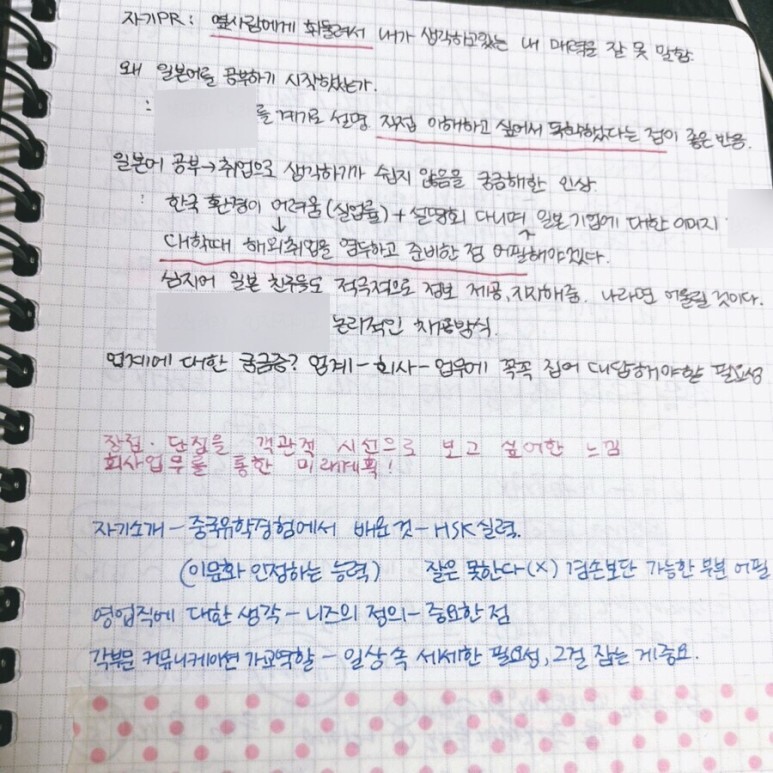 자기PR : 옆사람에게 휘둘려서 내가 생각하고있는 내 매력을 잘 못 말함.
왜 일본어를 공부하기 시작했는가.
: 를 계기로 설명 직접 이해하고 싶어서 독학했다는 점이 좋은 반응.
일본어 공부→취업으로 생각하기가 쉽지 않음을 궁금해한 인상.
: 한국 환경이 어려움(실업률) + 설명회 다니며 일본기업에 대한 이미지
↓
대학때 해외취업을 염두하고 준비한 점 어필해야겠다.
심지어 일본 친구들도 적극적으로 정보 제공, 지지해줌. 나라면 어울릴 것이다.
논리적인 채용방식.
업계에 대한 궁금증? 업계 - 회사 - 업무에 꼭꼭 집어 대답해야할 필요성
장점·단점을 객관적 시선으로 보고 싶어한 느낌
회사업무를 통한 미래계획!
자기소개 - 중국유학경험에서 배운것 - HSK실력.
(이문화 인정하는 능력) 잘은 못한다(X) 겸손보단 가능한 부분 어필
영업직에 대한 생각 - 니즈의 정의 - 중요한 점
각부문 커뮤니케이션 가교역할 - 일상 속 세세한 필요성, 그걸 잡는 게 중요.